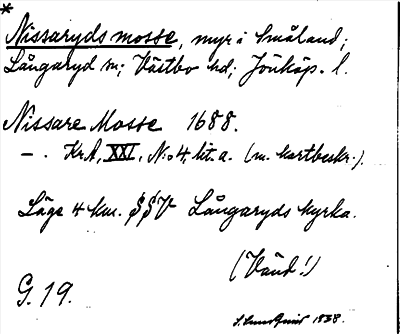 *
Nissaryds mosse, myr i Småland;
Långaryd sn; Västbo hd; Jönköp. l.
Nissare Mosse 1688.
—. Kr.A, XXI, No 4, lit. a. (m. kartbeskr.).
Läge 4 km. SSV Långaryds kyrka.
(Vänd!)
G. 19.
1938.